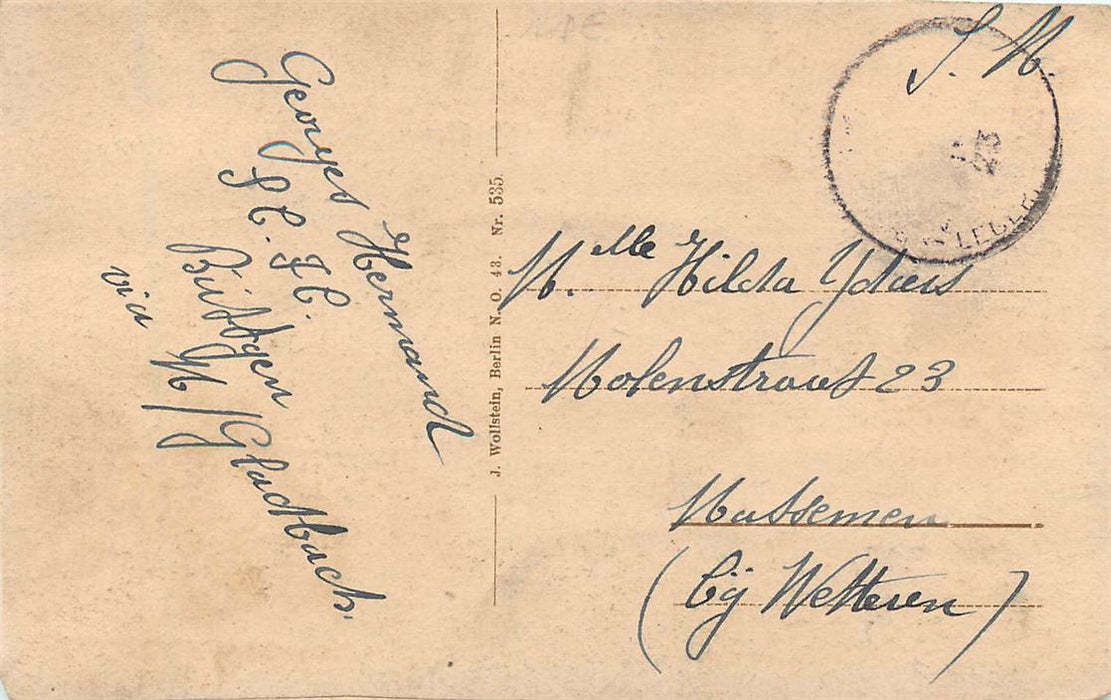 Georges Hermandt
H. F. H.
Büttgen
via M/Gladbach.
J. Wollstein, Berlin N. O. 43. Nr. 535.
S. M.
23
M.elle Hilda
Molenstraat 23
Massemen
(bij Wetteren)